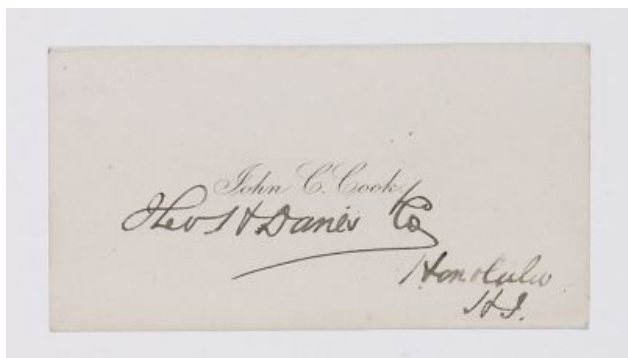 John C. Cook
Theo H Davies Co
Honolulu
H.I.